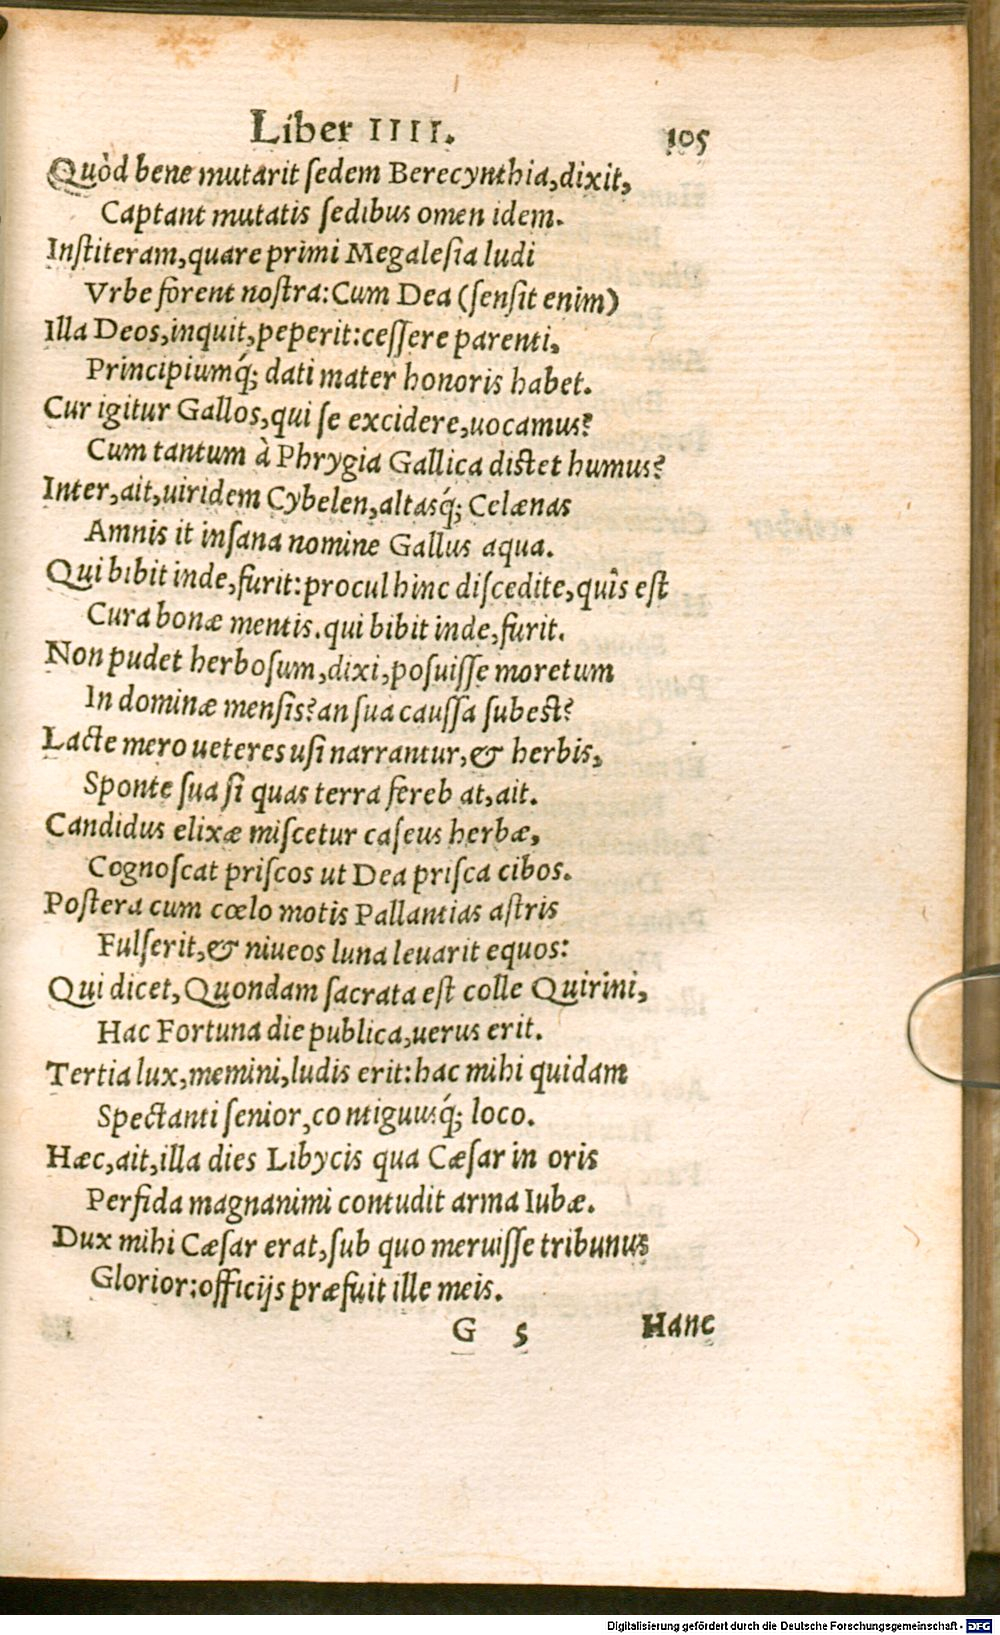 Liber IIII. 105
Quòd bene mutarit ſedem Berecynthia,dixit,
Captant mutatis ſedibus omen idem.
Inſtiteram,quare primi Megaleſia ludi
Vrbe forent noſtra:Cum Dea (ſenſit enim)
Illa Deos,inquit,peperit:ceſſere parenti,
Principiumq́; dati mater honoris habet.
Cur igitur Gallos,qui ſe excidere,uocamus?
Cum tantum à Phrygia Gallica diſtet humus?
Inter,ait,uiridem Cybelen,altasq́; Celænas
Amnis it inſana nomine Gallus aqua.
Qui bibit inde,furit:procul hinc diſcedite,quîs eſt
Cura bonæ mentis.qui bibit inde,furit.
Non pudet herboſum,dixi,poſuiſſe moretum
In dominæ menſis?an ſua cauſſa ſubeſt?
Lacte mero ueteres uſi narrantur,& herbis,
Sponte ſua ſi quas terra fereb at,ait.
Candidus elixæ miſcetur caſeus herbæ,
Cognoſcat priſcos ut Dea priſca cibos.
Poſtera cum cœlo motis Pallantias aſtris
Fulſerit,& niueos luna leuarit equos:
Qui dicet,Quondam ſacrata eſt colle Quirini,
Hac Fortuna die publica,uerus erit.
Tertia lux,memini,ludis erit:hac mihi quidam
Spectanti ſenior,contiguusq́; loco.
Hæc,ait,illa dies Libycis qua Cæſar in oris
Perfida magnanimi contudit arma Iubæ.
Dux mihi Cæſar erat,ſub quo meruiſſe tribunus
Glorior:officijs præfuit ille meis.
G 5 Hanc
Digitalisierung gefördert durch die Deutsche Forschungsgemeinschaft - DFG